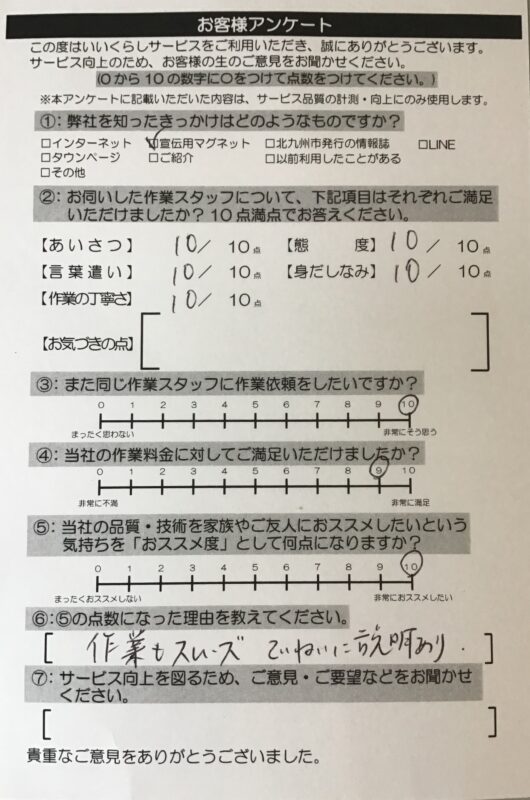 お客様アンケート
この度はいいくらしサービスをご利用いただき、誠にありがとうございます。
サービス向上のため、お客様の生のご意見をお聞かせください。
(0から10の数字に○をつけて点数をつけてください。)
※本アンケートに記載いただいた内容は、サービス品質の計測・向上にのみ使用します。
①：弊社を知ったきっかけはどのようなものですか？
□インターネット ☑宣伝用マグネット □北九州市発行の情報誌 □LINE
□タウンページ □ご紹介 □以前利用したことがある
□その他
②：お伺いした作業スタッフについて、下記項目はそれぞれご満足
いただけましたか？10点満点でお答えください。
【あいさつ】 10/ 10点 【態度】 10/ 10点
【言葉遣い】 10/ 10点 【身だしなみ】 10/ 10点
【作業の丁寧さ】 10/ 10点
【お気づきの点】
③：また同じ作業スタッフに作業依頼をしたいですか？
0 1 2 3 4 5 6 7 8 9 10
まったく思わない 非常にそう思う
④：当社の作業料金に対してご満足いただけましたか？
0 1 2 3 4 5 6 7 8 9 10
非常に不満 非常に満足
⑤：当社の品質・技術を家族やご友人におススメしたいという
気持ちを「おススメ度」として何点になりますか？
0 1 2 3 4 5 6 7 8 9 10
まったくおススメしない 非常におススメしたい
⑥：⑤の点数になった理由を教えてください。
作業もスムーズ ていねいに説明あり.
⑦：サービス向上を図るため、ご意見・ご要望などをお聞かせ
ください。
貴重なご意見をありがとうございました。